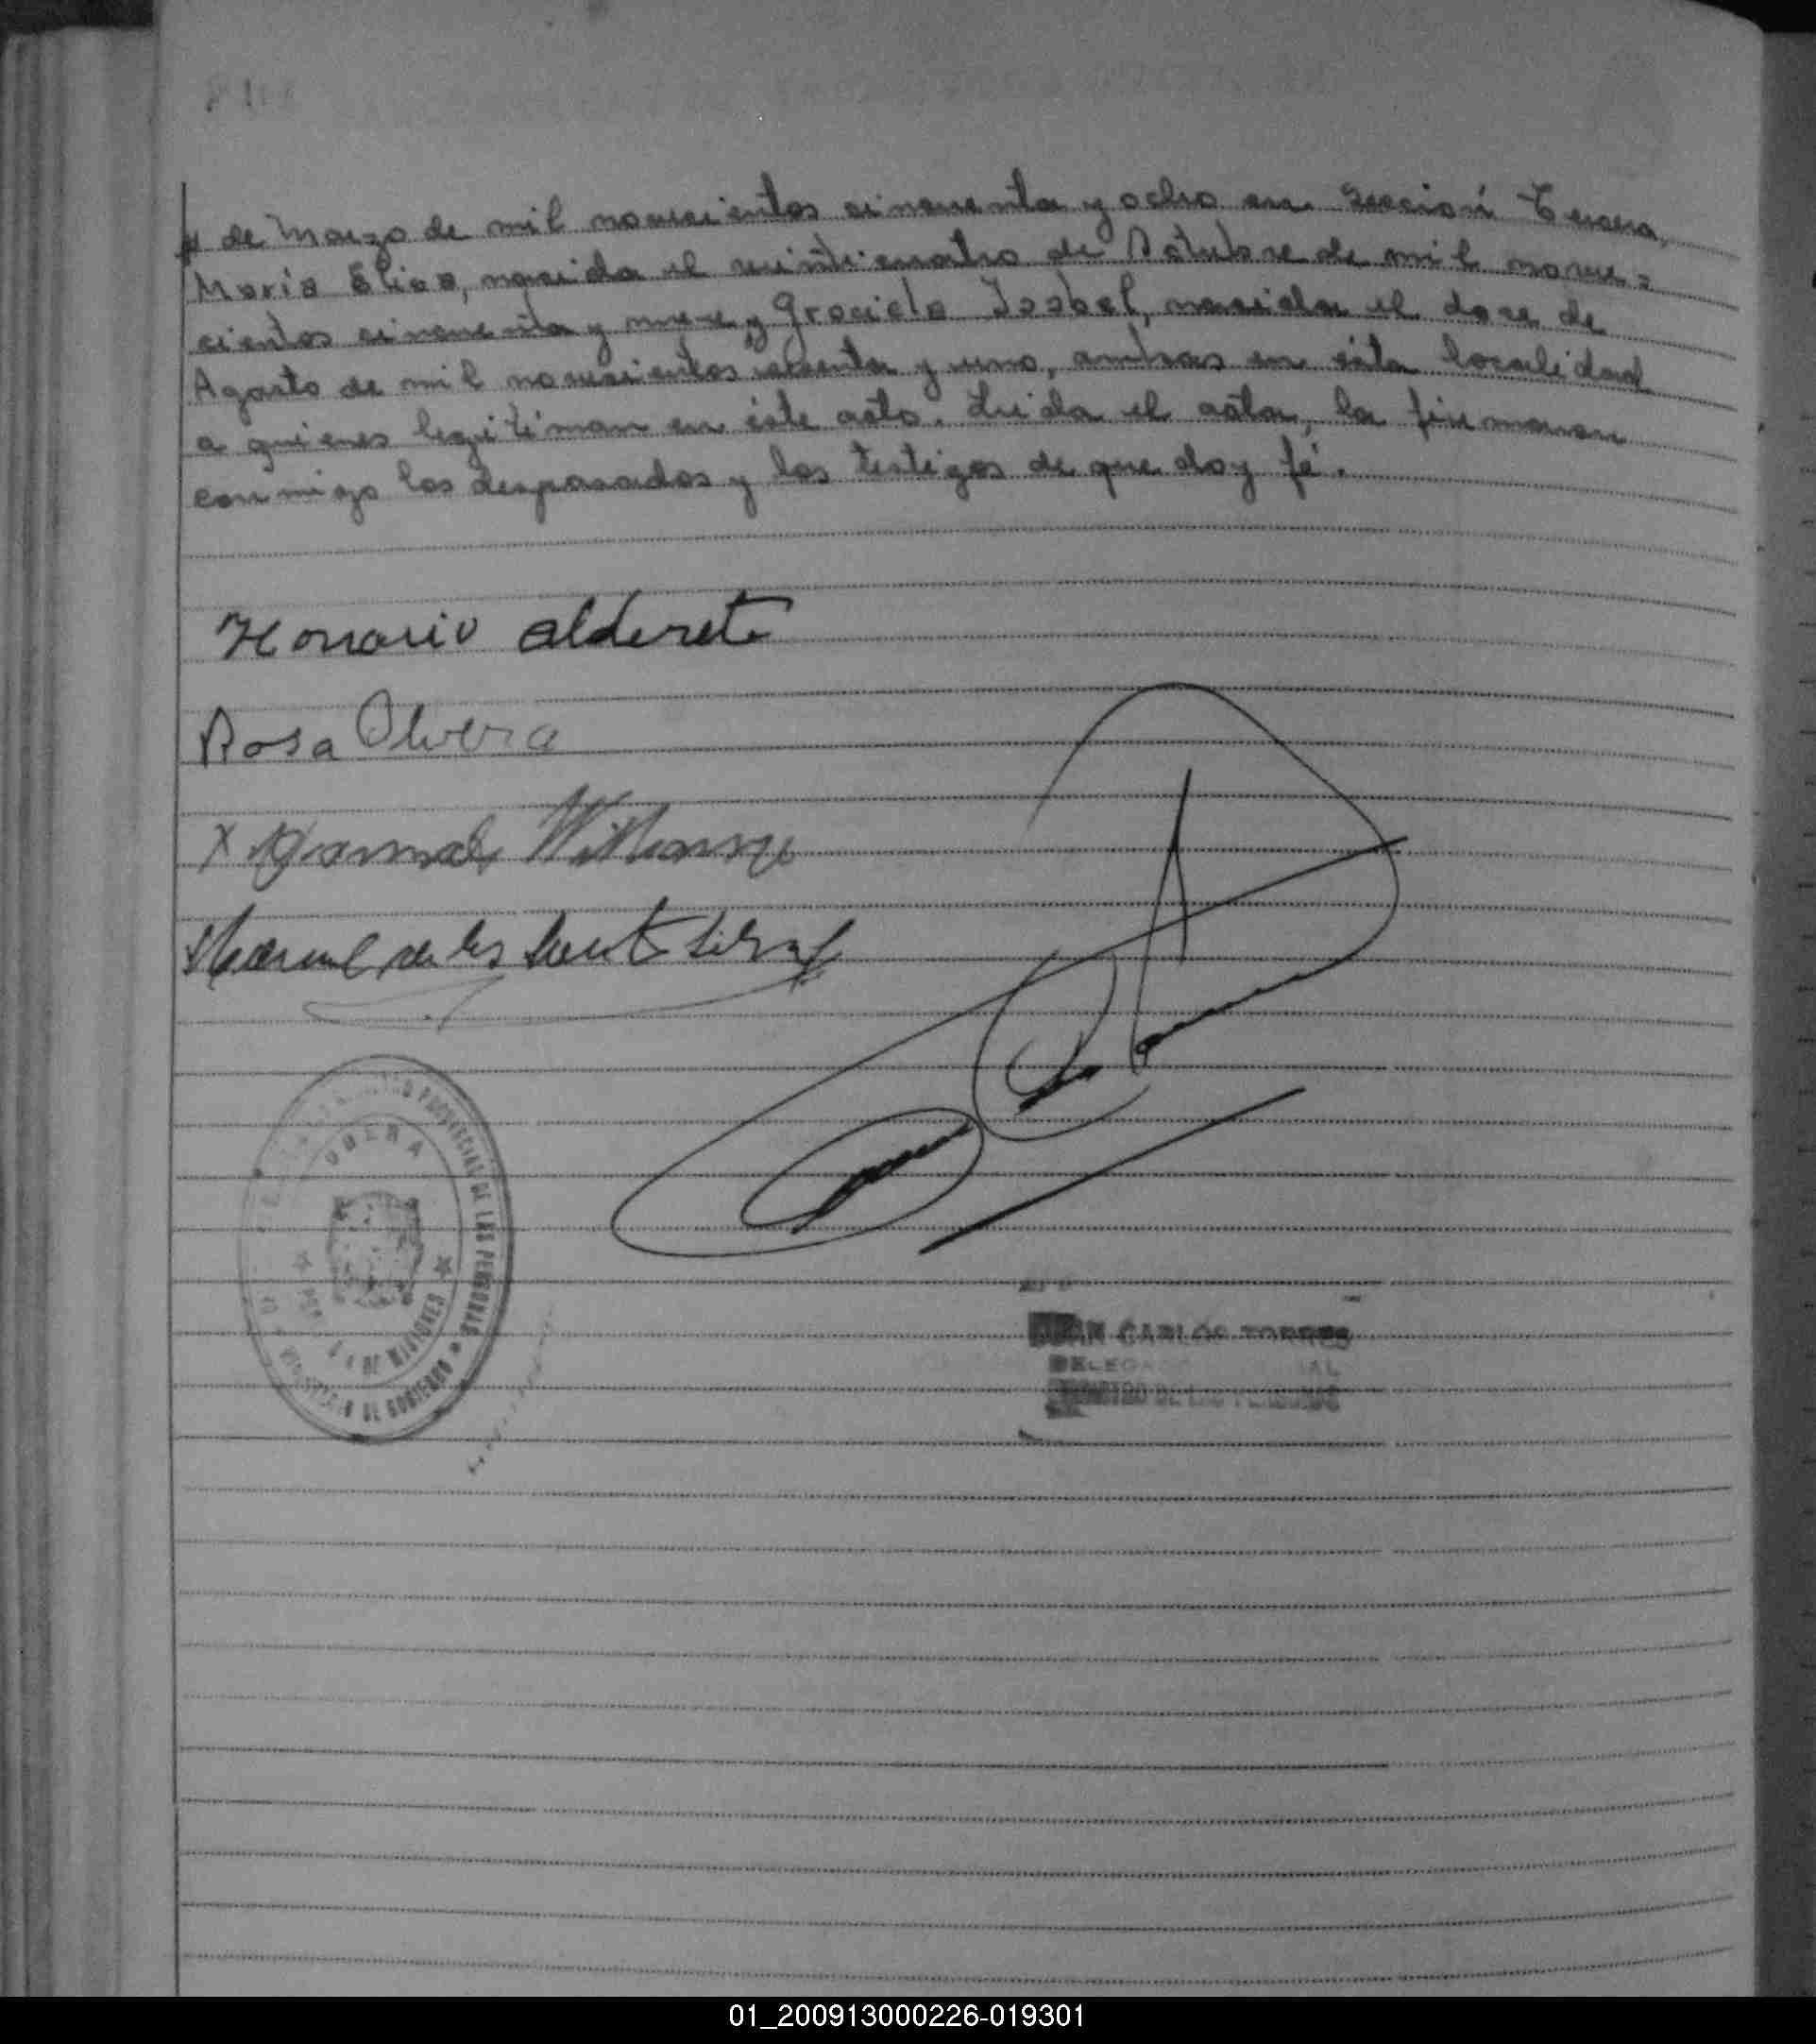 de Marzo de mil novecientos cincuenta y ocho en Sección Tercera,
María Elisa, nacida el veinticuatro de Octubre de mil nove=
cientos cincuenta y nueve y Graciela Isabel, nacida el doce de
Agosto de mil novecientos sesenta y uno, ambas en ésta localidad
a quienes legitiman en éste acto. Leida el acta, la firmaron
conmigo los desposados y los testigos de que doy fé.
Honorio alderete
Rosa Olivera
X
Manuel de los Sant
OBERA
PROVINCIAL DE LAS PERSONAS
DE MISIONES
MINISTERIO DE GOBIERNO
JUAN CARLOS TORRES
REGISTRO DE LAS PERSONAS
01_200913000226-019301